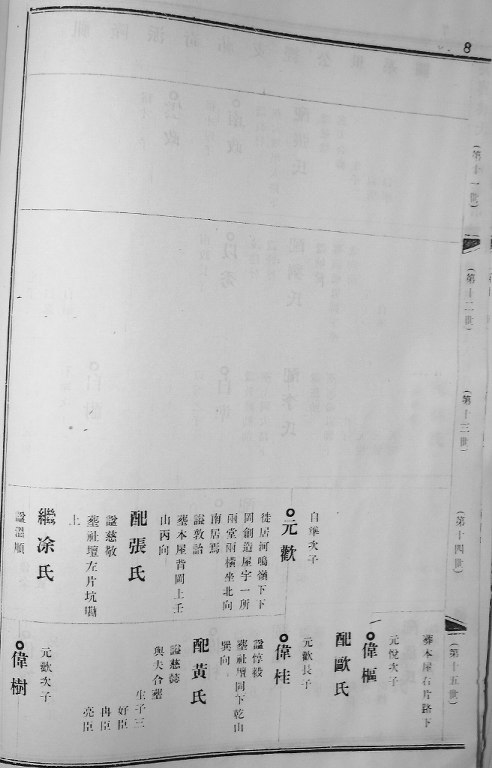 8
(第十一世)
(第十二世)
(第十三世)
(第十四世)
自華次子
元歡
徒居河鳴嶺下下
岡創造屋宇一所
兩堂兩橫坐北向
南居焉
諡敦詒
葬本屋背岡上壬
山丙向
配張氏
諡慈敬
葬社壇左片坑壩
上
繼凃氏
諡溫順
(第十五世)
葬本屋右片路下
元悅次子
偉樞
配歐氏
元歡長子
偉桂
諡惇毅
葬社壇岡下乾山
巽向
配黃氏
諡慈懿
與夫合葬
生子三
好臣
冉臣
亮臣
元歡次子
偉樹